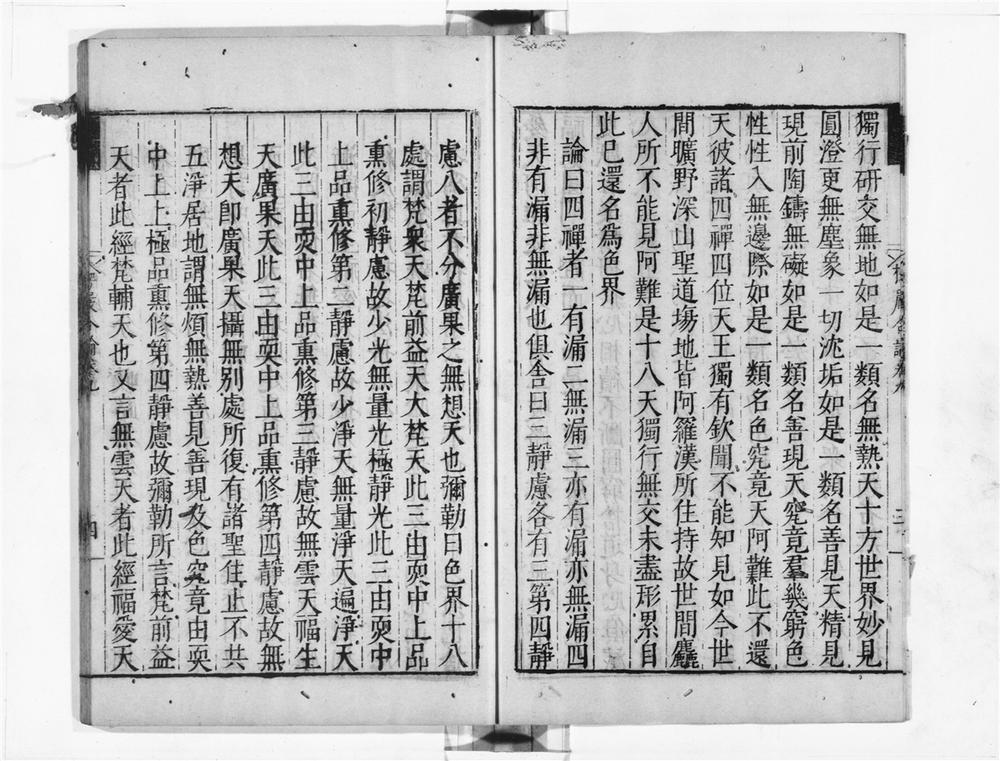 獨行研交無地如是一類名無熱天十方世界妙見
圓澄更無塵象一切沈垢如是一類名善見天精見
現前陶鑄無礙如是一類名善現天究竟羣幾窮色
性性入無邊際如是一類名色究竟天阿難此不還
天彼諸四禪四位天王獨有欽聞不能知見如今世
間曠野深山聖道場地皆阿羅漢所住持故世間麤
人所不能見阿難是十八天獨行無交未盡形累自
此已還名爲色界
論曰四禪者一有漏二無漏三亦有漏亦無漏四
非有漏非無漏也俱舍曰三靜慮各有三第四靜
慮八者不分廣果之無想天也彌勒曰色界十八
處謂梵衆天梵前益天大梵天此三由耎中上品
熏修初靜慮故少光無量光極靜光此三由耎中
上品熏修第二靜慮故少淨天無量淨天遍淨天
此三由耎中上品熏修第三靜慮故無雲天福生
天廣果天此三由耎中上品熏修第四靜慮故無
想天卽廣果天攝無別處所復有諸聖住止不共
五淨居地謂無煩無熱善見善現及色究竟由耎
中上上極品熏修第四靜慮故彌勒所言梵前益
天者此經梵輔天也又言無雲天者此經福愛天